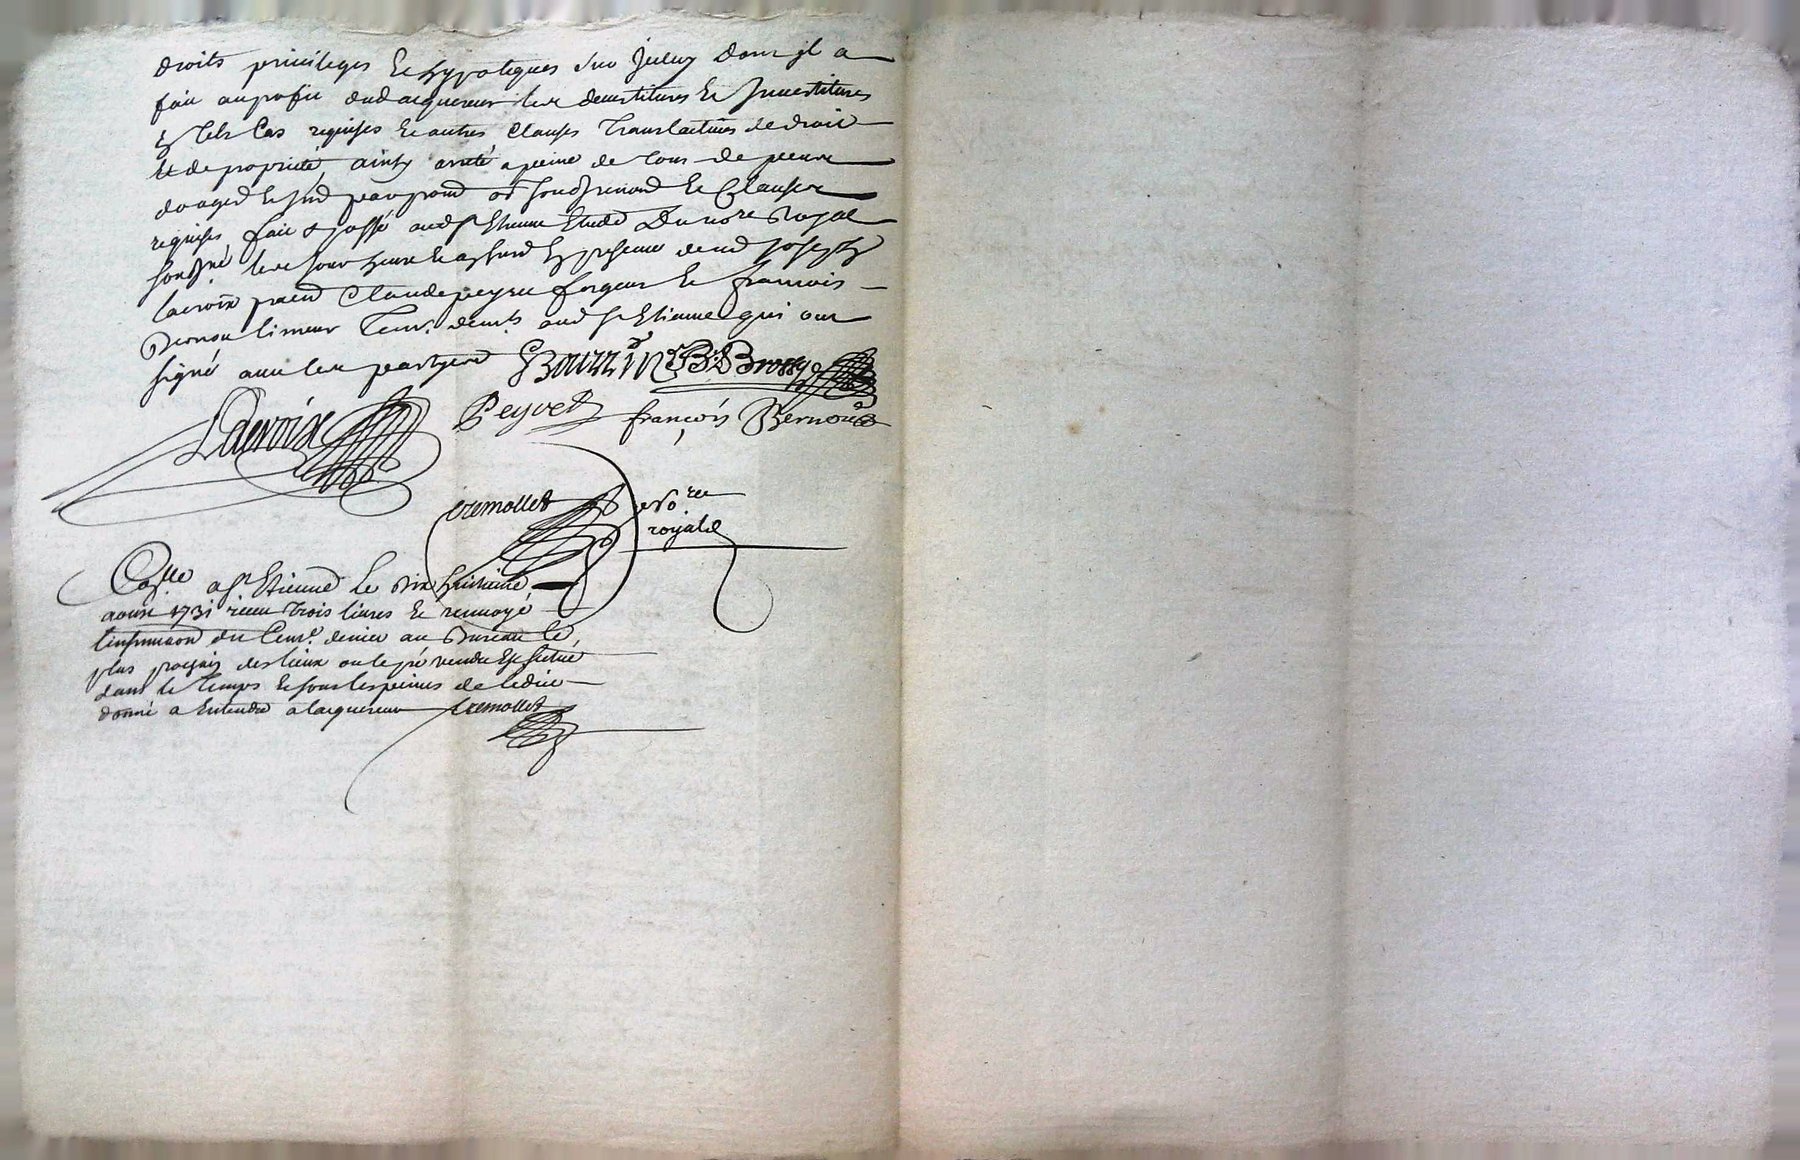 droits privileges & hypoteques sur iceluy dont il a
fait au profit dud acquereur les devestitures & Investitures
en tels Cas requises & autres Clauses Translatives de droit
et de proprieté, ainsy aresté a peine de tous de
& Clauses
requises, fait & passé aud St Etienne Etude Du nore Royal
soussigné les jour heure & en presence de Joseph
lacroix Claude peyret forgeur & francois
Bernou limeur aud St Etienne qui ont
signé avec les parties Bouzzin B: Brossy
Lacroix Peyvet françois Bernou
cremollet No.re
royal
Con.lle a St Etienne le dix huitieme
aoust 1731 receu trois livres & renvoyé
linsinuaon du Cent.e denier au Bureau le
plus prochain des lieux ou le pré vendu Est situé
dans le temps & sous les peines de ledit
donné a Entendre a lacquereur cremollet